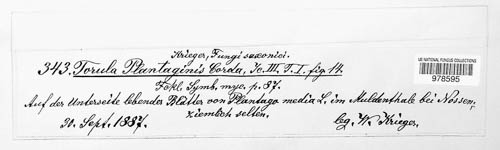 Krieger, Fungi saxonici.
343. Torula Plantaginis Corda, Ic. III. T. I. fig 14.
Fckl. Symb. myc. p. 87.
Auf der Unterseite lebender Blätter von Plantago media L, im Muldenthale bei Nossen,
ziemlich selten.
30. Sept. 1887.
lg. W. Krieger.
US NATIONAL FUNGUS COLLECTIONS
978595